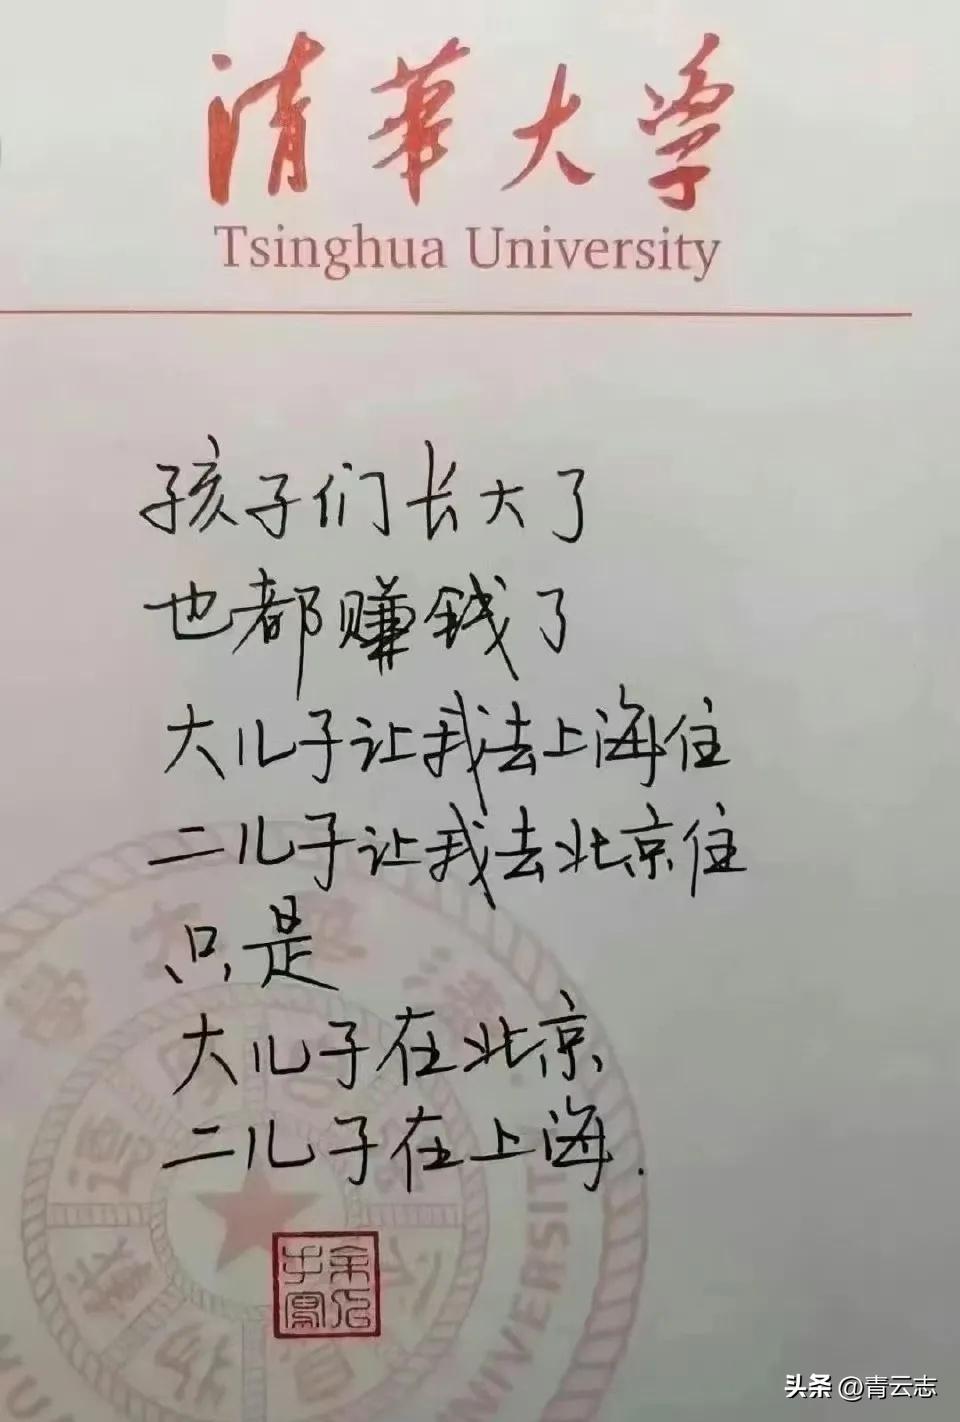 清華大学
Tsinghua University
孩子们长大了
也都赚钱了
大儿子让我去上海住
二儿子让我去北京住
只是
大儿子在北京
二儿子在上海.
头条 @青云志